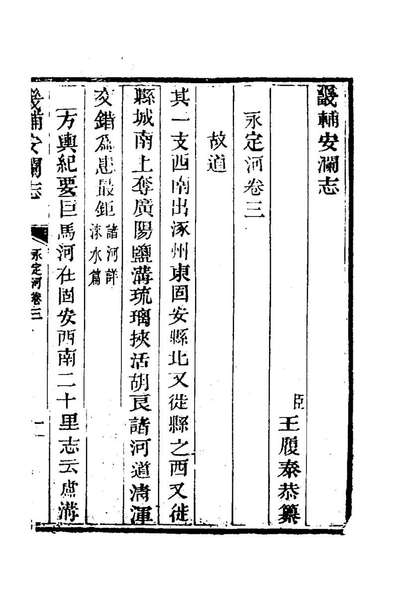 畿輔安瀾志
臣王履泰恭纂
永定河卷三
故道
其一支西南出涿州東固安縣北又從縣之西又從
縣城南上奪廣陽鹽溝琉璃挾活胡良諸河道淸渾
交錯爲患最鉅諸河詳
淶水篇
方輿紀要巨馬河在固安西南二十里志云盧溝
畿輔安瀾志
永定河卷三
一